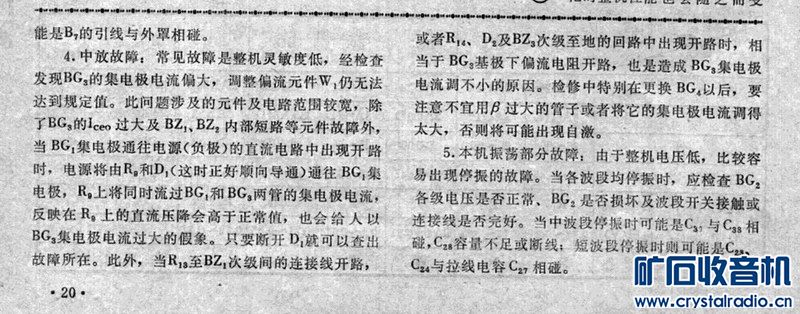 能是B₇的引线与外罩相碰。
4.中放故障：常见故障是整机灵敏度低，经检查
发现BG₃的集电极电流偏大，调整偏流元件W₁仍无法
达到规定值。此问题涉及的元件及电路范围较宽，除
了BG₃的Iceo过大及BZ₁、BZ₂内部短路等元件故障外，
当BG₁集电极通往电源(负极)的直流电路中出现开路
时，电源将由R₉和D₁(这时正好顺向导通)通往BG₁集
电极，R₉上将同时流过BG₁和BG₃两管的集电极电流，
反映在R₉上的直流压降会高于正常值，也会给人以
BG₃集电极电流过大的假象。只要断开D₁就可以查出
故障所在。此外，当R₁₃至BZ₁次级间的连接线开路，
·20·
或者R₁₄、D₂及BZ₃次级至地的回路中出现开路时，相
当于BG₃基极下偏流电阻开路，也是造成BG₃集电极
电流调不小的原因。检修中特别在更换BG₄以后，要
注意不宜用β过大的管子或者将它的集电极电流调得
太大，否则将可能出现自激。
5.本机振荡部分故障：由于整机电压低，比较容
易出现停振的故障。当各波段均停振时，应检查BG₂
各级电压是否正常、BG₂是否损坏及波段开关接触或
连接线是否完好。当中波段停振时可能是C₃₁与C₃₃相
碰，C₂₈容量不足或断线；短波段停振时则可能是
C₂₄与拉线电容C₂₇相碰。
矿石收音机
www.crystalradio.cn